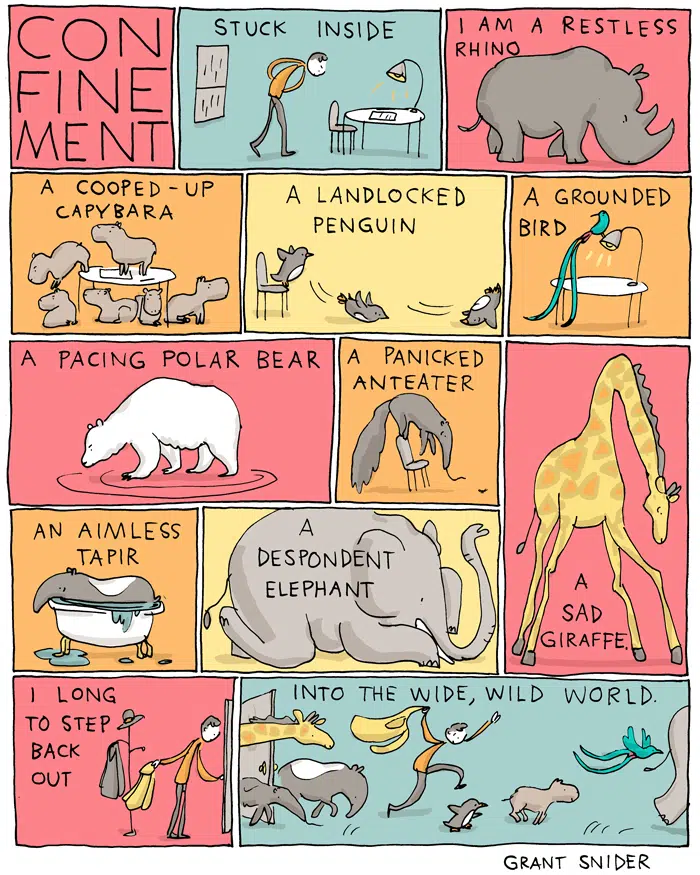 CON
FINE
MENT
STUCK INSIDE
I AM A RESTLESS
RHINO
A COOPED-UP
CAPYBARA
A LANDLOCKED
PENGUIN
A GROUNDED
BIRD
A PACING POLAR BEAR
A PANICKED
ANTEATER
AN AIMLESS
TAPIR
A
DESPONDENT
ELEPHANT
A
SAD
GIRAFFE.
I LONG
TO STEP
BACK
OUT
INTO THE WIDE, WILD WORLD.
GRANT SNIDER